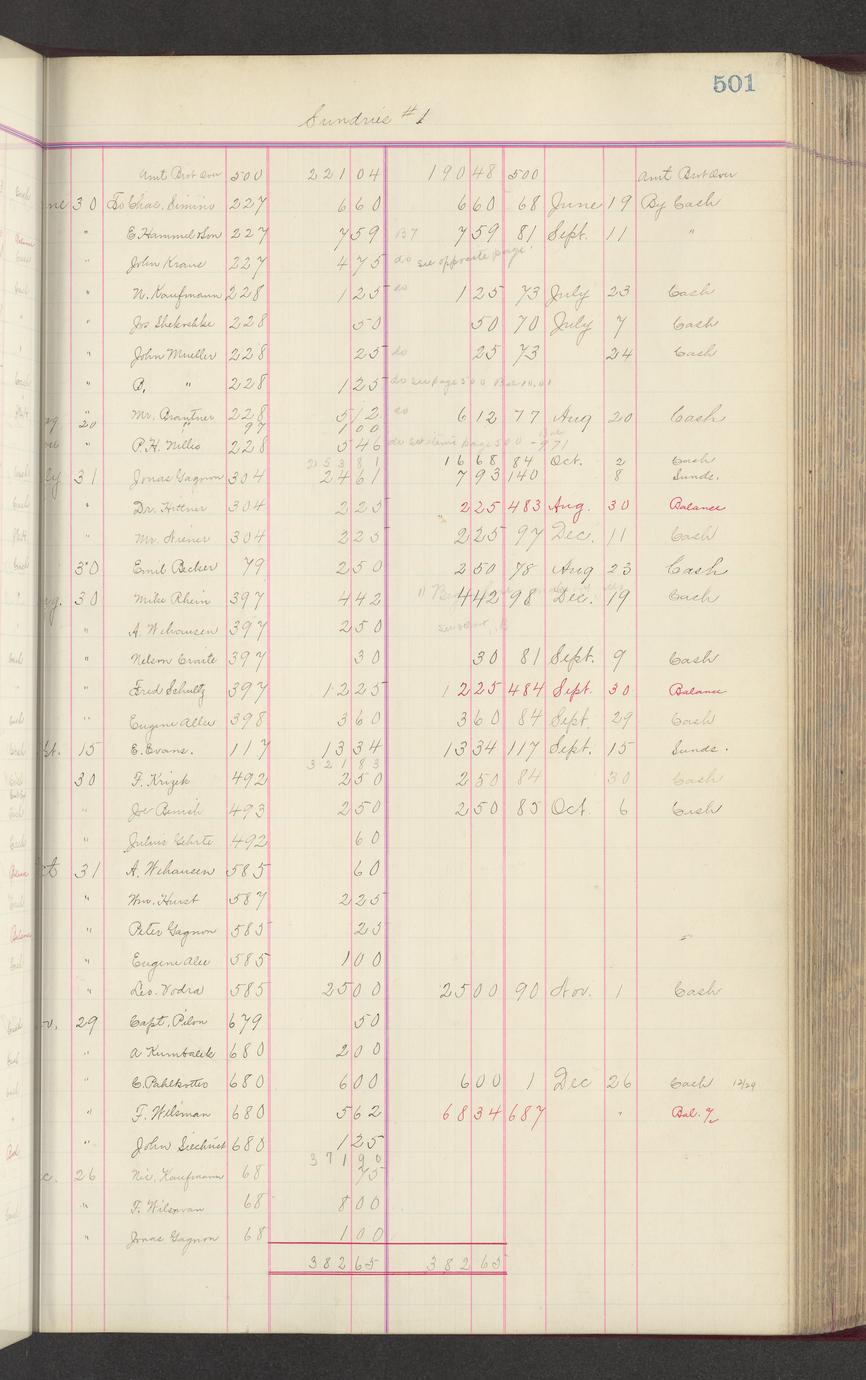 501
Sundries #1
Amt Brot Over 500 221 04 190 48 500 Amt Brot Over
30 To Chas. Simino 227 6 60 6 60 68 June 19 By Cash
" E. Hammel & Son 227 7 59 7 59 81 Sept. 11 "
" John Kraus 227 4 75 do see opposite page
" N. Kaufmann 228 1 25 do 1 25 73 July 23 Cash
" Jos 228 50 50 70 July 7 Cash
" John Mueller 228 25 do 25 73 24 Cash
" B. " 228 1 25 do see page 500
" Mr. Brantner 228 5 12 do 6 12 77 Aug 20 Cash
20 " 97 1 00
" P.H. Nillis 228 5 46 do page 500
253 81 16 68 84 Oct. 2 Cash
31 Jonas Gagnon 304 24 61 7 93 140 8 Sunds.
" Dr. Hittner 304 2 25 2 25 483 Aug. 30 Balance
" Mr. Wiener 304 2 25 2 25 97 Dec. 11 Cash
30 Emil Becker 79 2 50 2 50 78 Aug 23 Cash
30 Mike Rhein 397 4 42 4 42 98 Dec. 19 Cash
" A. Wehausen 397 2 50
" Nelson Craite 397 30 30 81 Sept. 9 Cash
" Fred Schultz 397 12 25 12 25 484 Sept. 30 Balance
" Eugene Allie 398 3 60 3 60 84 Sept. 29 Cash
15 E. Evans. 117 13 34 13 34 117 Sept. 15 Sunds.
321 83
30 F. Krizek 492 2 50 2 50 84 30 Cash
" Joe Benish 493 2 50 2 50 85 Oct. 6 Cash
" Julius Gehrte 492 60
31 A. Wehausen 585 60
" Wm. Hurst 587 2 25
" Peter Gagnon 585 25
" Eugene Alie 585 1 00
" Leo. Vodra 585 25 00 25 00 90 Nov. 1 Cash
29 Capt. Pilon 679 50
" A Kumbalek 680 2 00
" C. Pahlkotto 680 6 00 6 00 1 Dec 26 Cash 12/29
" F. Wilsman 680 5 62 68 34 687 " Bal. %
" John Siechrist 680 1 25
371 90
26 Nic. Kaufmann 68 75
" F. Wilsman 68 8 00
" Jonas Gagnon 68 1 00
382 65 382 65